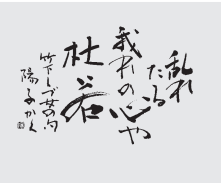 乱れ
たる
我れの心や
杜若
竹下しづの女の句
陽子かく